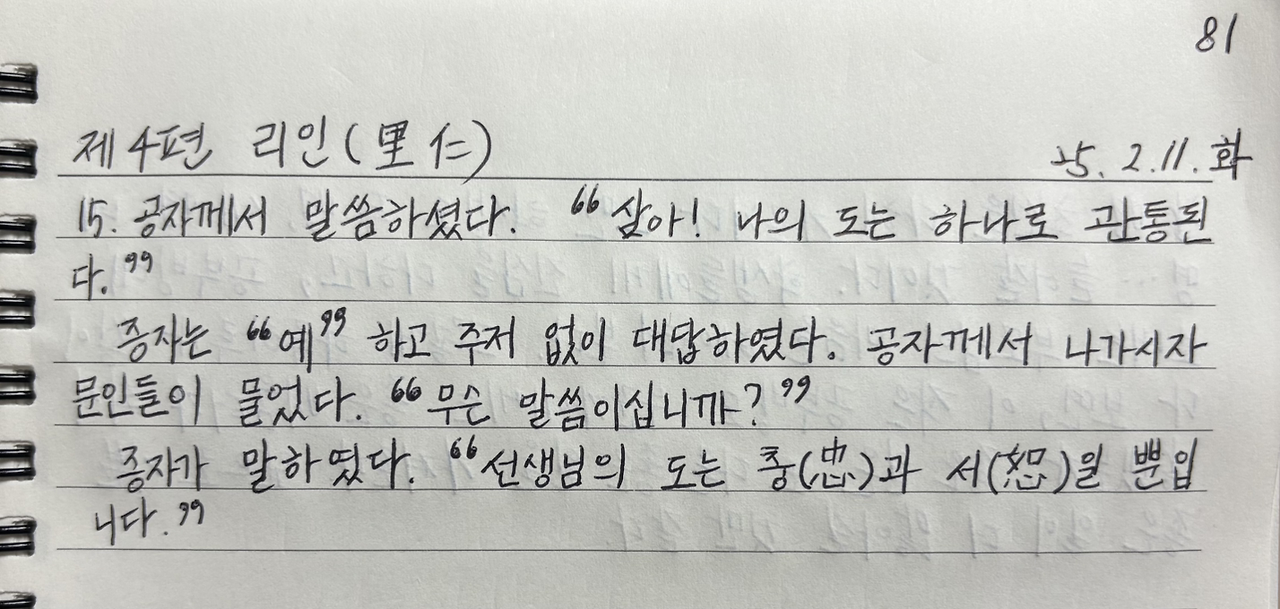 81
제4편 리인(里仁)
25. 2. 11. 화
15. 공자께서 말씀하셨다. “삼아! 나의 도는 하나로 관통된
다.”
증자는 “예” 하고 주저 없이 대답하였다. 공자께서 나가시자
문인들이 물었다. “무슨 말씀이십니까?”
증자가 말하였다. “선생님의 도는 충(忠)과 서(恕)일 뿐입
니다.”